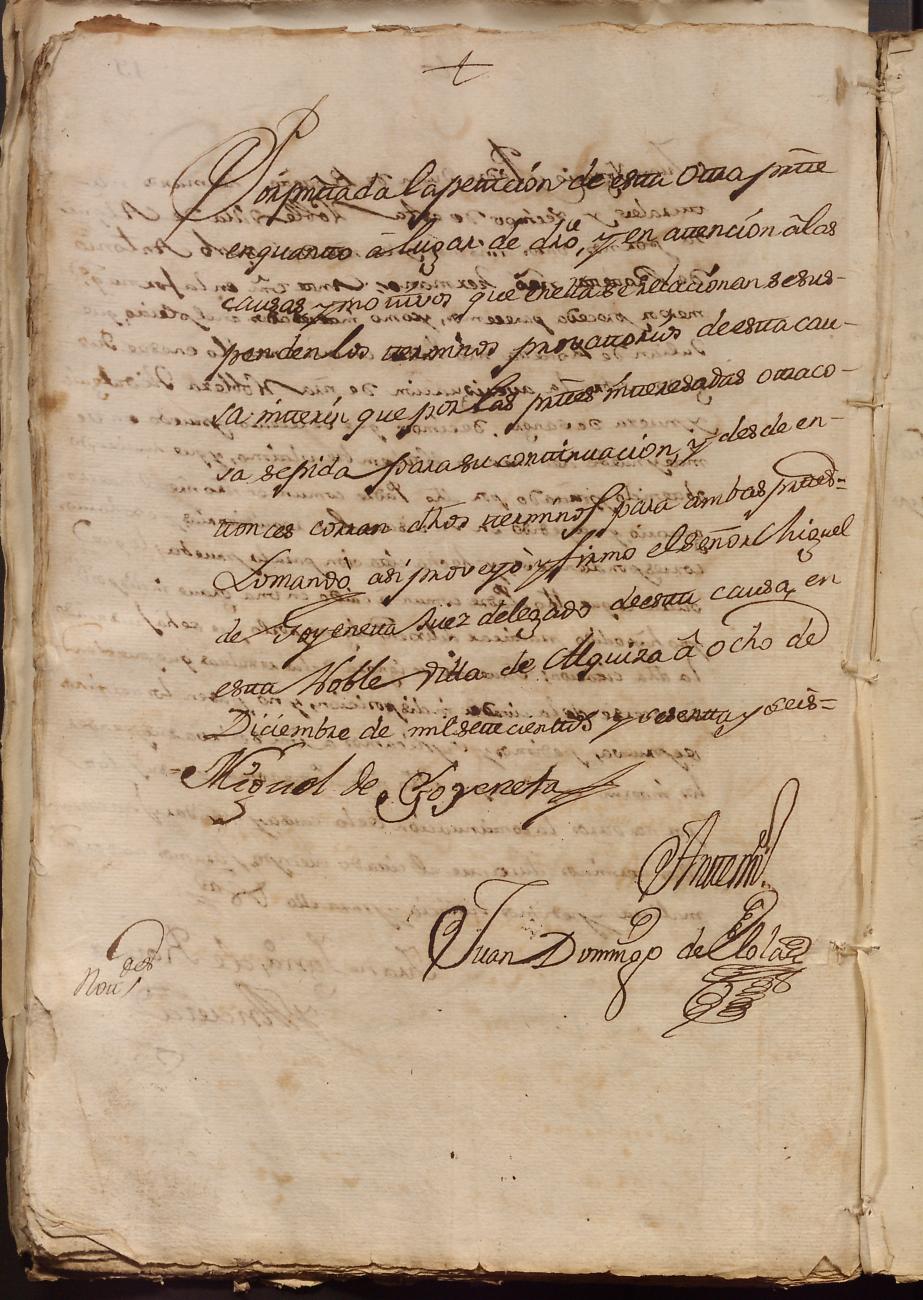 +
Por presentada la petición de esta otra parte
en quanto â lugar de dro, y en attención â las
causas y motivos que en ella se relacionan se sus-
penden los terminos provattorios de esta cau-
sa ínterin que por las prtes interesadas otra co-
sa se pida para su continuacion, y desde en-
tonces corran dhos terminos para ambas prtes=
Lo mando, asi proveyò y firmo el señor Miguel
de Goyeneta Juez delegado de esta causa, en
esta Noble Villa de Alquiza â ocho de
Diciembre de mil setecientos y sesenta y seis=
Miguel de Goyeneta
Antemi
Juan Domingo de
dos
Nou